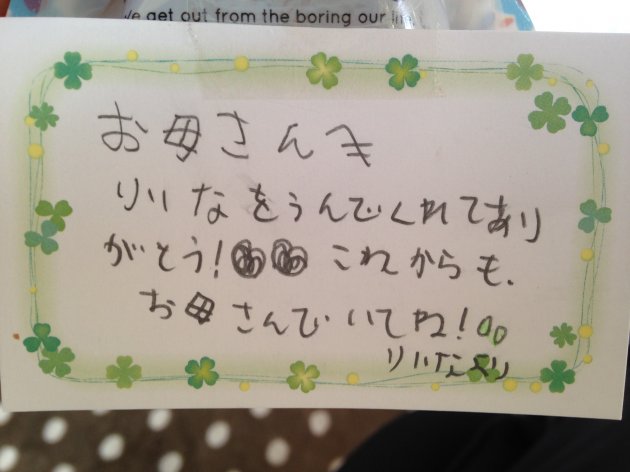 We get out from the boring our
お母さんへ
りいなをうんでくれてあり
がとう! これからも、
お母さんでいてね!
りいなより